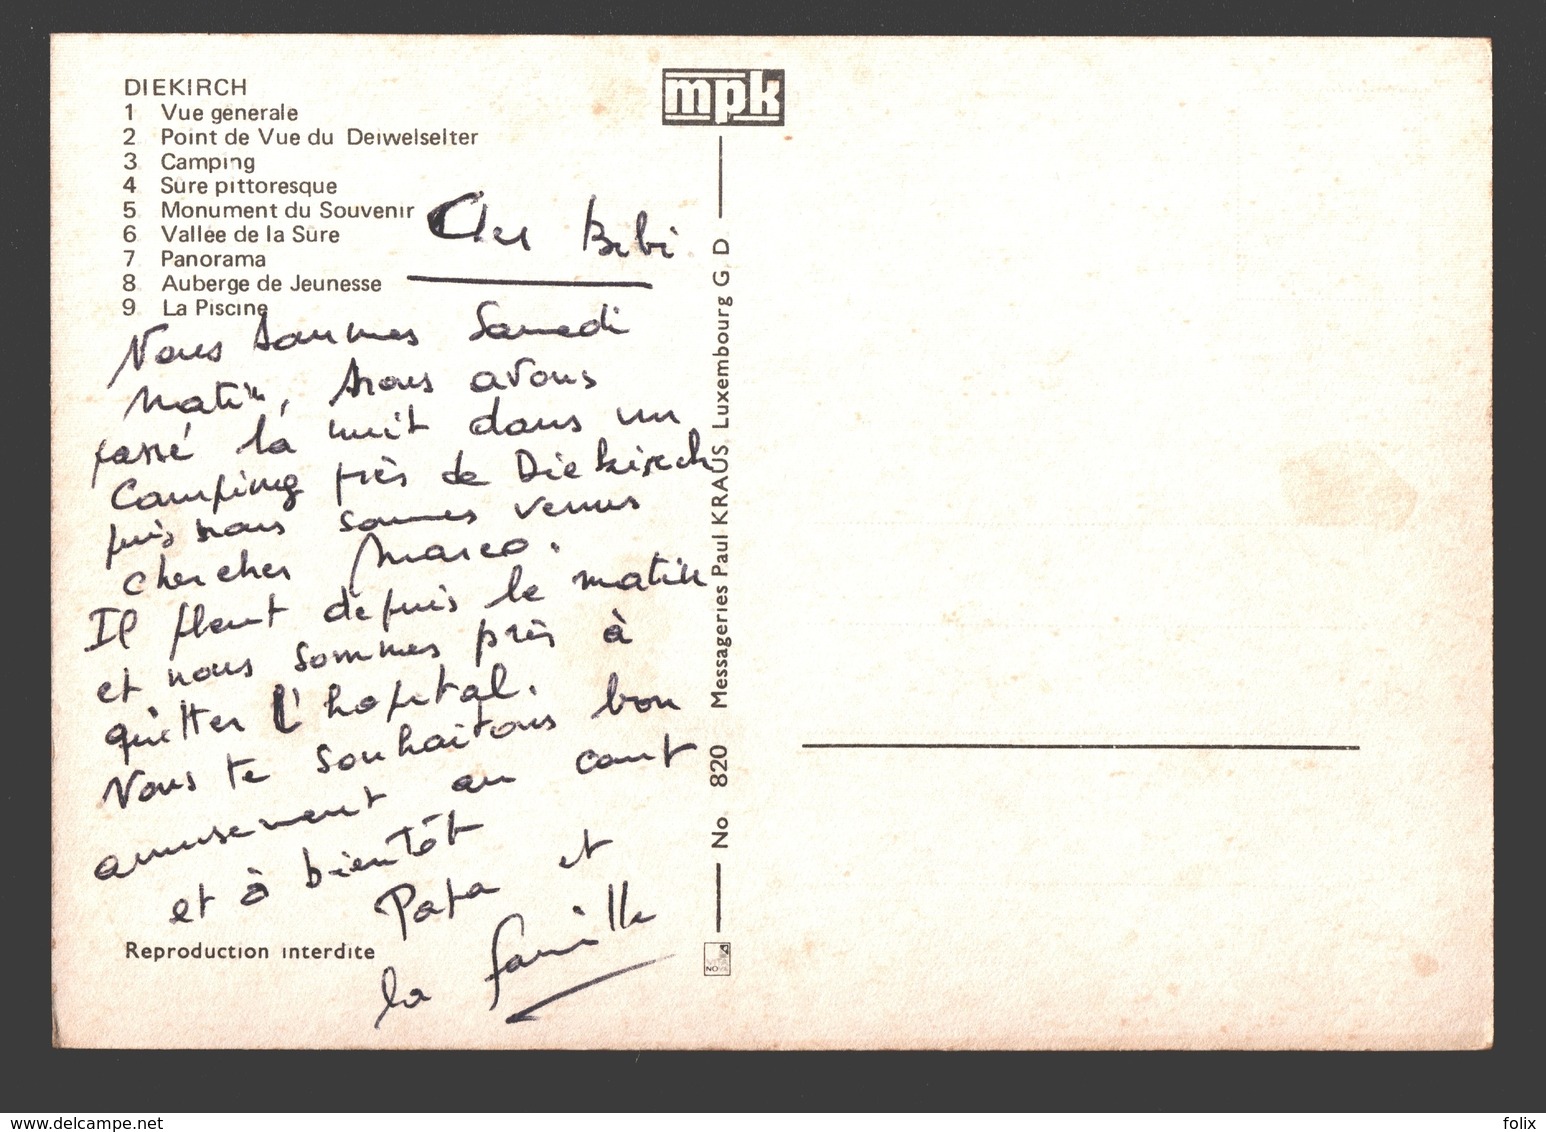 DIEKIRCH
1 Vue generale
2 Point de Vue du Deiwelselter
3 Camping
4 Sûre pittoresque
5 Monument du Souvenir
6 Vallée de la Sûre
7 Panorama
8 Auberge de Jeunesse
9 La Piscine
mpk
Cher Bibi
Nous sommes Samedi
matin, nous avons
passé la nuit dans un
Camping près de Diekirch
puis nous sommes venus
chercher Marco.
Il pleut depuis le matin
et nous sommes près à
quitter l'hopital.
Nous te souhaitons bon
amusement au camp
et à bientôt
Papa et
la famille
Reproduction interdite
No. 820 Messageries Paul KRAUS, Luxembourg G. D
VITA
NOVA
www.delcampe.net
folix_